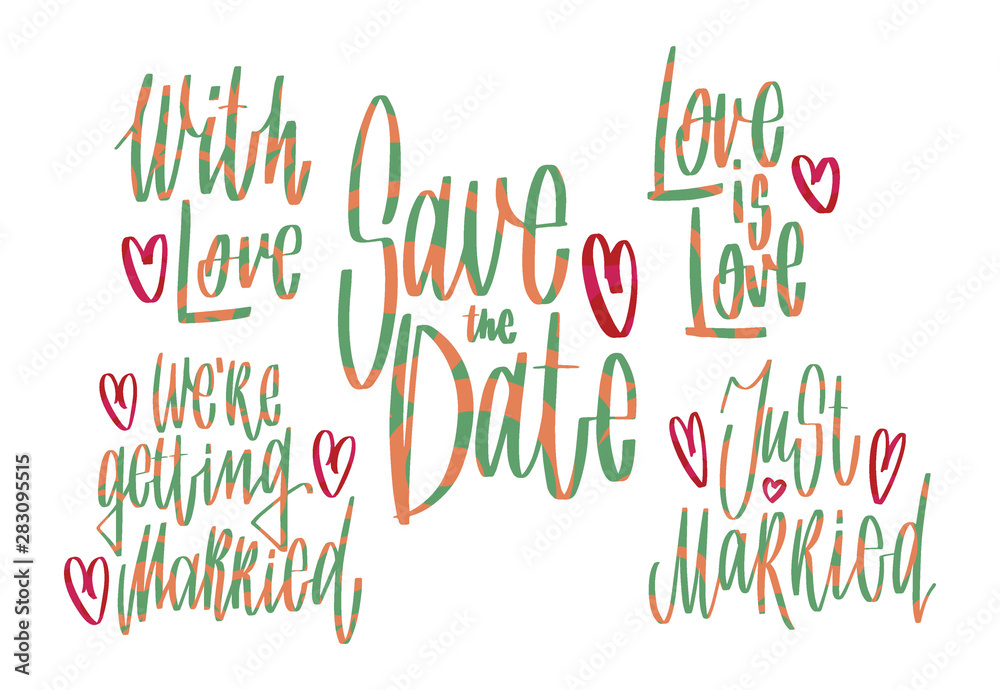 With
Love
Save
the
Date
Love
is
Love
We're
getting
Married
Just
Married
Adobe Stock | #283095515